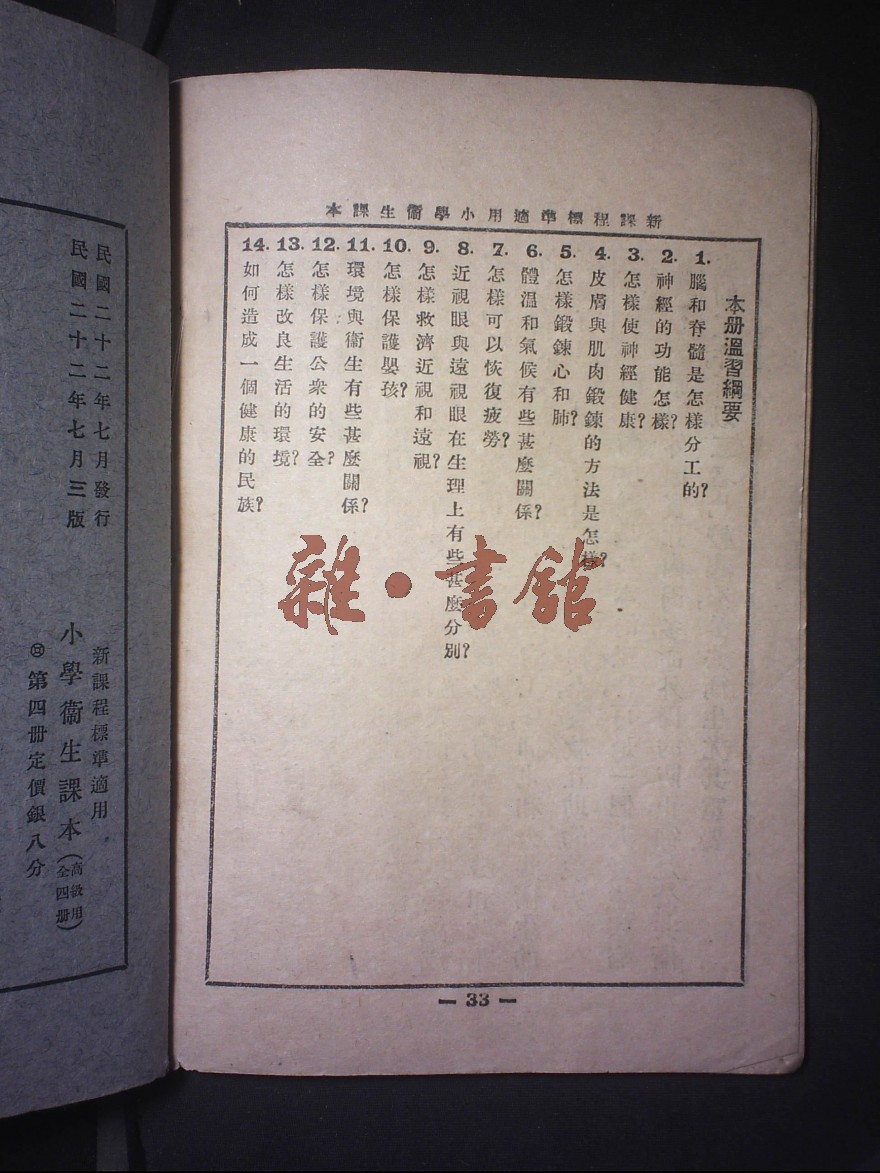 新課程標準適用小學衞生課本
本册溫習綱要
1. 腦和脊髓是怎樣分工的？
2. 神經的功能怎樣？
3. 怎樣使神經健康？
4. 皮膚與肌肉鍛鍊的方法是怎樣？
5. 怎樣鍛鍊心和肺？
6. 體溫和氣候有些甚麼關係？
7. 怎樣可以恢復疲勞？
8. 近視眼與遠視眼在生理上有些甚麼分別？
9. 怎樣救濟近視和遠視？
10. 怎樣保護嬰孩？
11. 環境與衞生有些甚麼關係？
12. 怎樣保護公衆的安全？
13. 怎樣改良生活的環境？
14. 如何造成一個健康的民族？
— 33 —
雜·書館
民國二十二年七月發行
民國二十二年七月三版
新課程標準適用
小學衞生課本（高級用全四册）
第四册定價銀八分